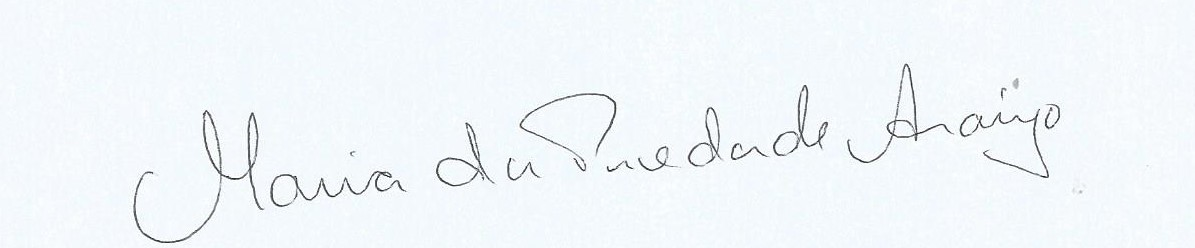 Maria da Piedade Araújo